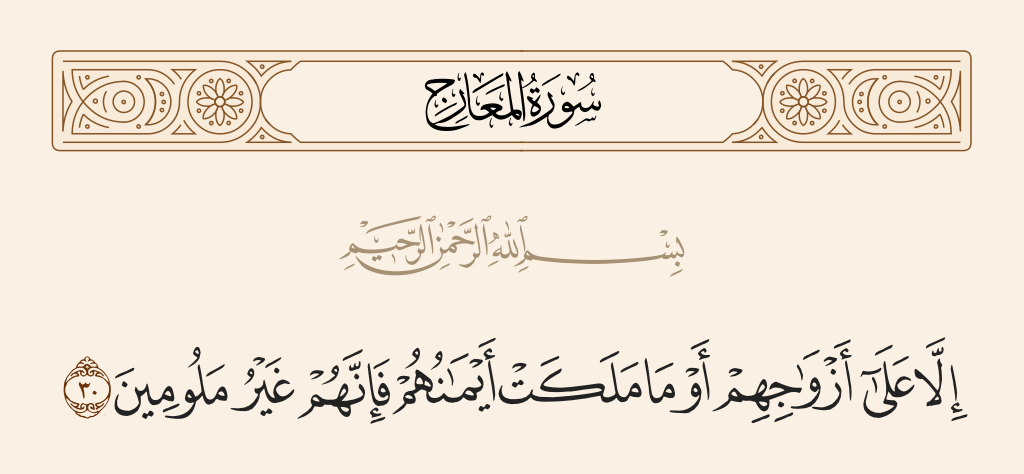 سُورَةُ المَعَارِجِ
بِسْمِ ٱللَّهِ ٱلرَّحْمَٰنِ ٱلرَّحِيمِ
إِلَّا عَلَىٰٓ أَزْوَٰجِهِمْ أَوْ مَا مَلَكَتْ أَيْمَٰنُهُمْ فَإِنَّهُمْ غَيْرُ مَلُومِينَ ٣٠